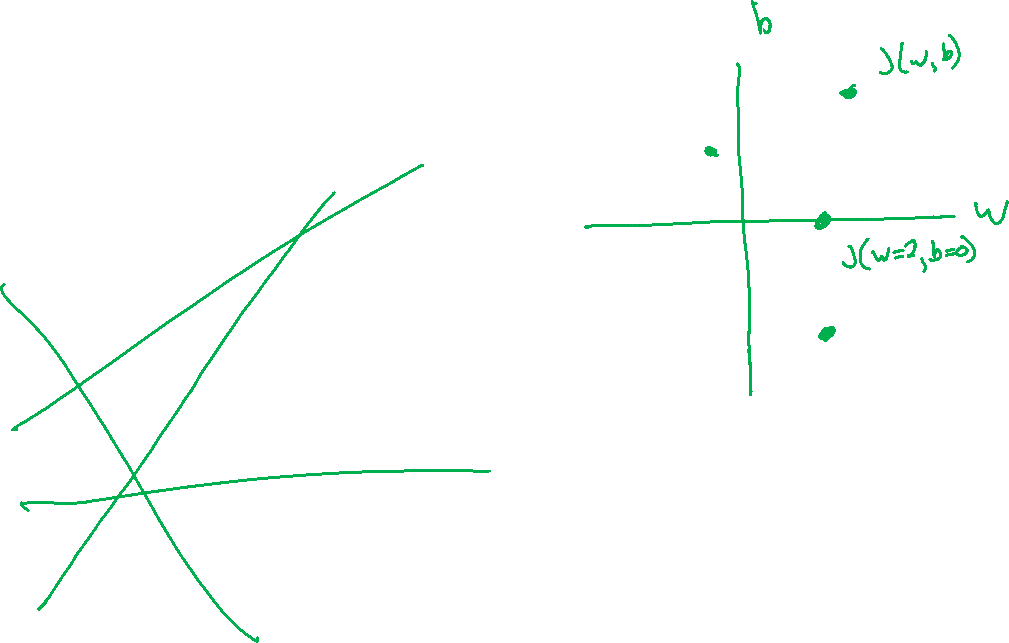 b
J(w,b)
W
J(w=2,b=0)